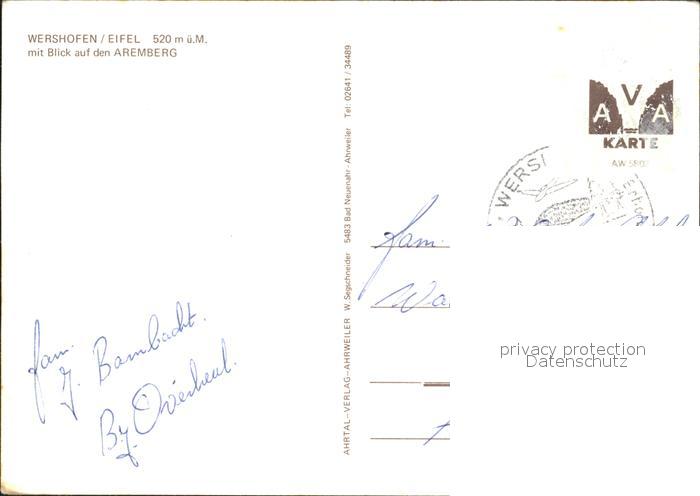 WERSHOFEN / EIFEL 520 m ü.M.
mit Blick auf den AREMBERG
AHRTAL–VERLAG–AHRWEILER W. Segschneider 5483 Bad Neuenahr - Ahrweiler Tel: 02641 / 34489
A V A
KARTE
AW 5802
WERSH
fam.
Wa
privacy protection
Datenschutz
fam.
J. Bambacht.